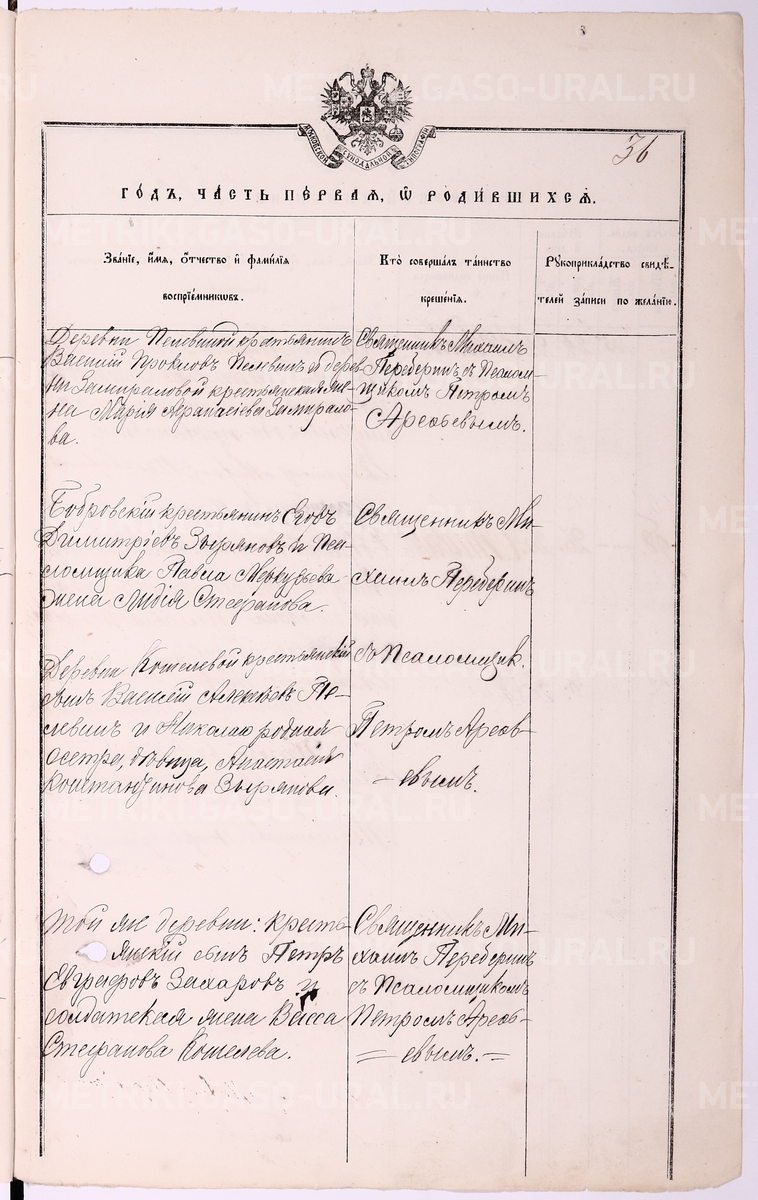 METRIKI.GASO-URAL.RU
36
МОСКОВСКОЙ СѴНОДАЛЬНОЙ ТИПОГРАФІИ
ГОДЪ, ЧАСТЬ ПЕРВАЯ, Ѿ РОДИВШИХСЯ.
Званїе, имя, отчество и фамилїя
воспрїемниковъ.
Кто совершалъ таинство
крещенїя.
Рукоприкладство свидѣ-
телей записи по желанїи.
Деревни крестьянинъ
Василій Прокловъ Пелевинъ и дерев-
ни Замираловой крестьянская же-
на Марія Аѳанасіева Замирало-
ва.
Священникъ Михаилъ
Переберинъ съ Псалом-
щикомъ Петромъ
Арефьевымъ.
Бобровскій крестьянинъ
Димитріевъ Зыряновъ и Пса-
ломщика Павла Меркурьева
жена Лидія Стефанова.
Священникъ Ми-
хаилъ Переберинъ
съ Псаломщик.
Петромъ Ареѳь-
евымъ.
Деревни Кошелевой крестьянскій
сынъ Василій Алексѣевъ Пе-
левинъ и Николаю родная
сестра, дѣвица, Анастасія
Константинова Зырянова.
той же деревни: кресть-
янскій сынъ Петръ
Евграфовъ Захаровъ и
солдатская жена Васса
Стефанова Кошелева.
Священникъ Ми-
хаилъ Переберинъ
съ Псаломщикомъ
Петромъ Ареѳь-
евымъ.